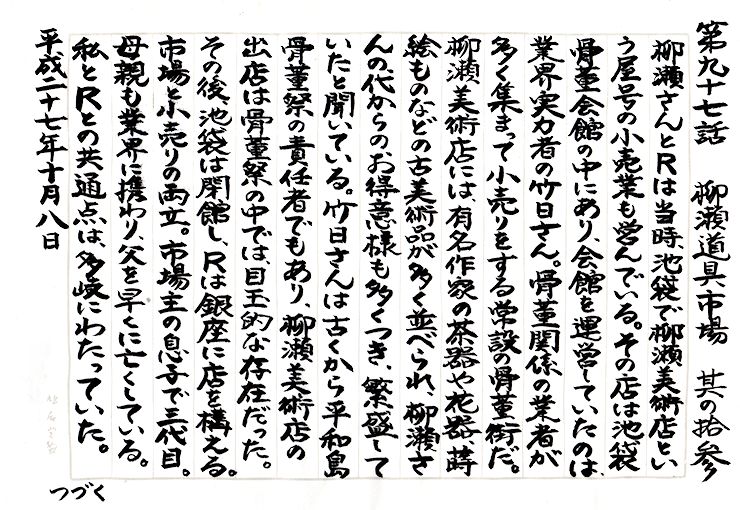 第九十七話　柳瀬道具市場　其の拾参
柳瀬さんとRは当時、池袋で柳瀬美術店とい
う屋号の小売業も営んでいる。その店は池袋
骨董会館の中にあり、会館を運営していたのは、
業界実力者の竹日さん。骨董関係の業者が
多く集まって小売りをする常設の骨董街だ。
柳瀬美術店には、有名作家の茶器や花器、蒔
絵ものなどの古美術品が多く並べられ、柳瀬さ
んの代からのお得意様も多くつき、繁盛して
いたと聞いている。竹日さんは古くから平和島
骨董祭の責任者でもあり、柳瀬美術店の
出店は骨董祭の中では、目玉的な存在だった。
その後、池袋は閉館し、Rは銀座に店を構える。
市場と小売りの両立。市場主の息子で三代目。
母親も業界に携わり、父を早くに亡くしている。
私とRとの共通点は、多岐にわたっていた。
平成二十七年十月八日
つづく